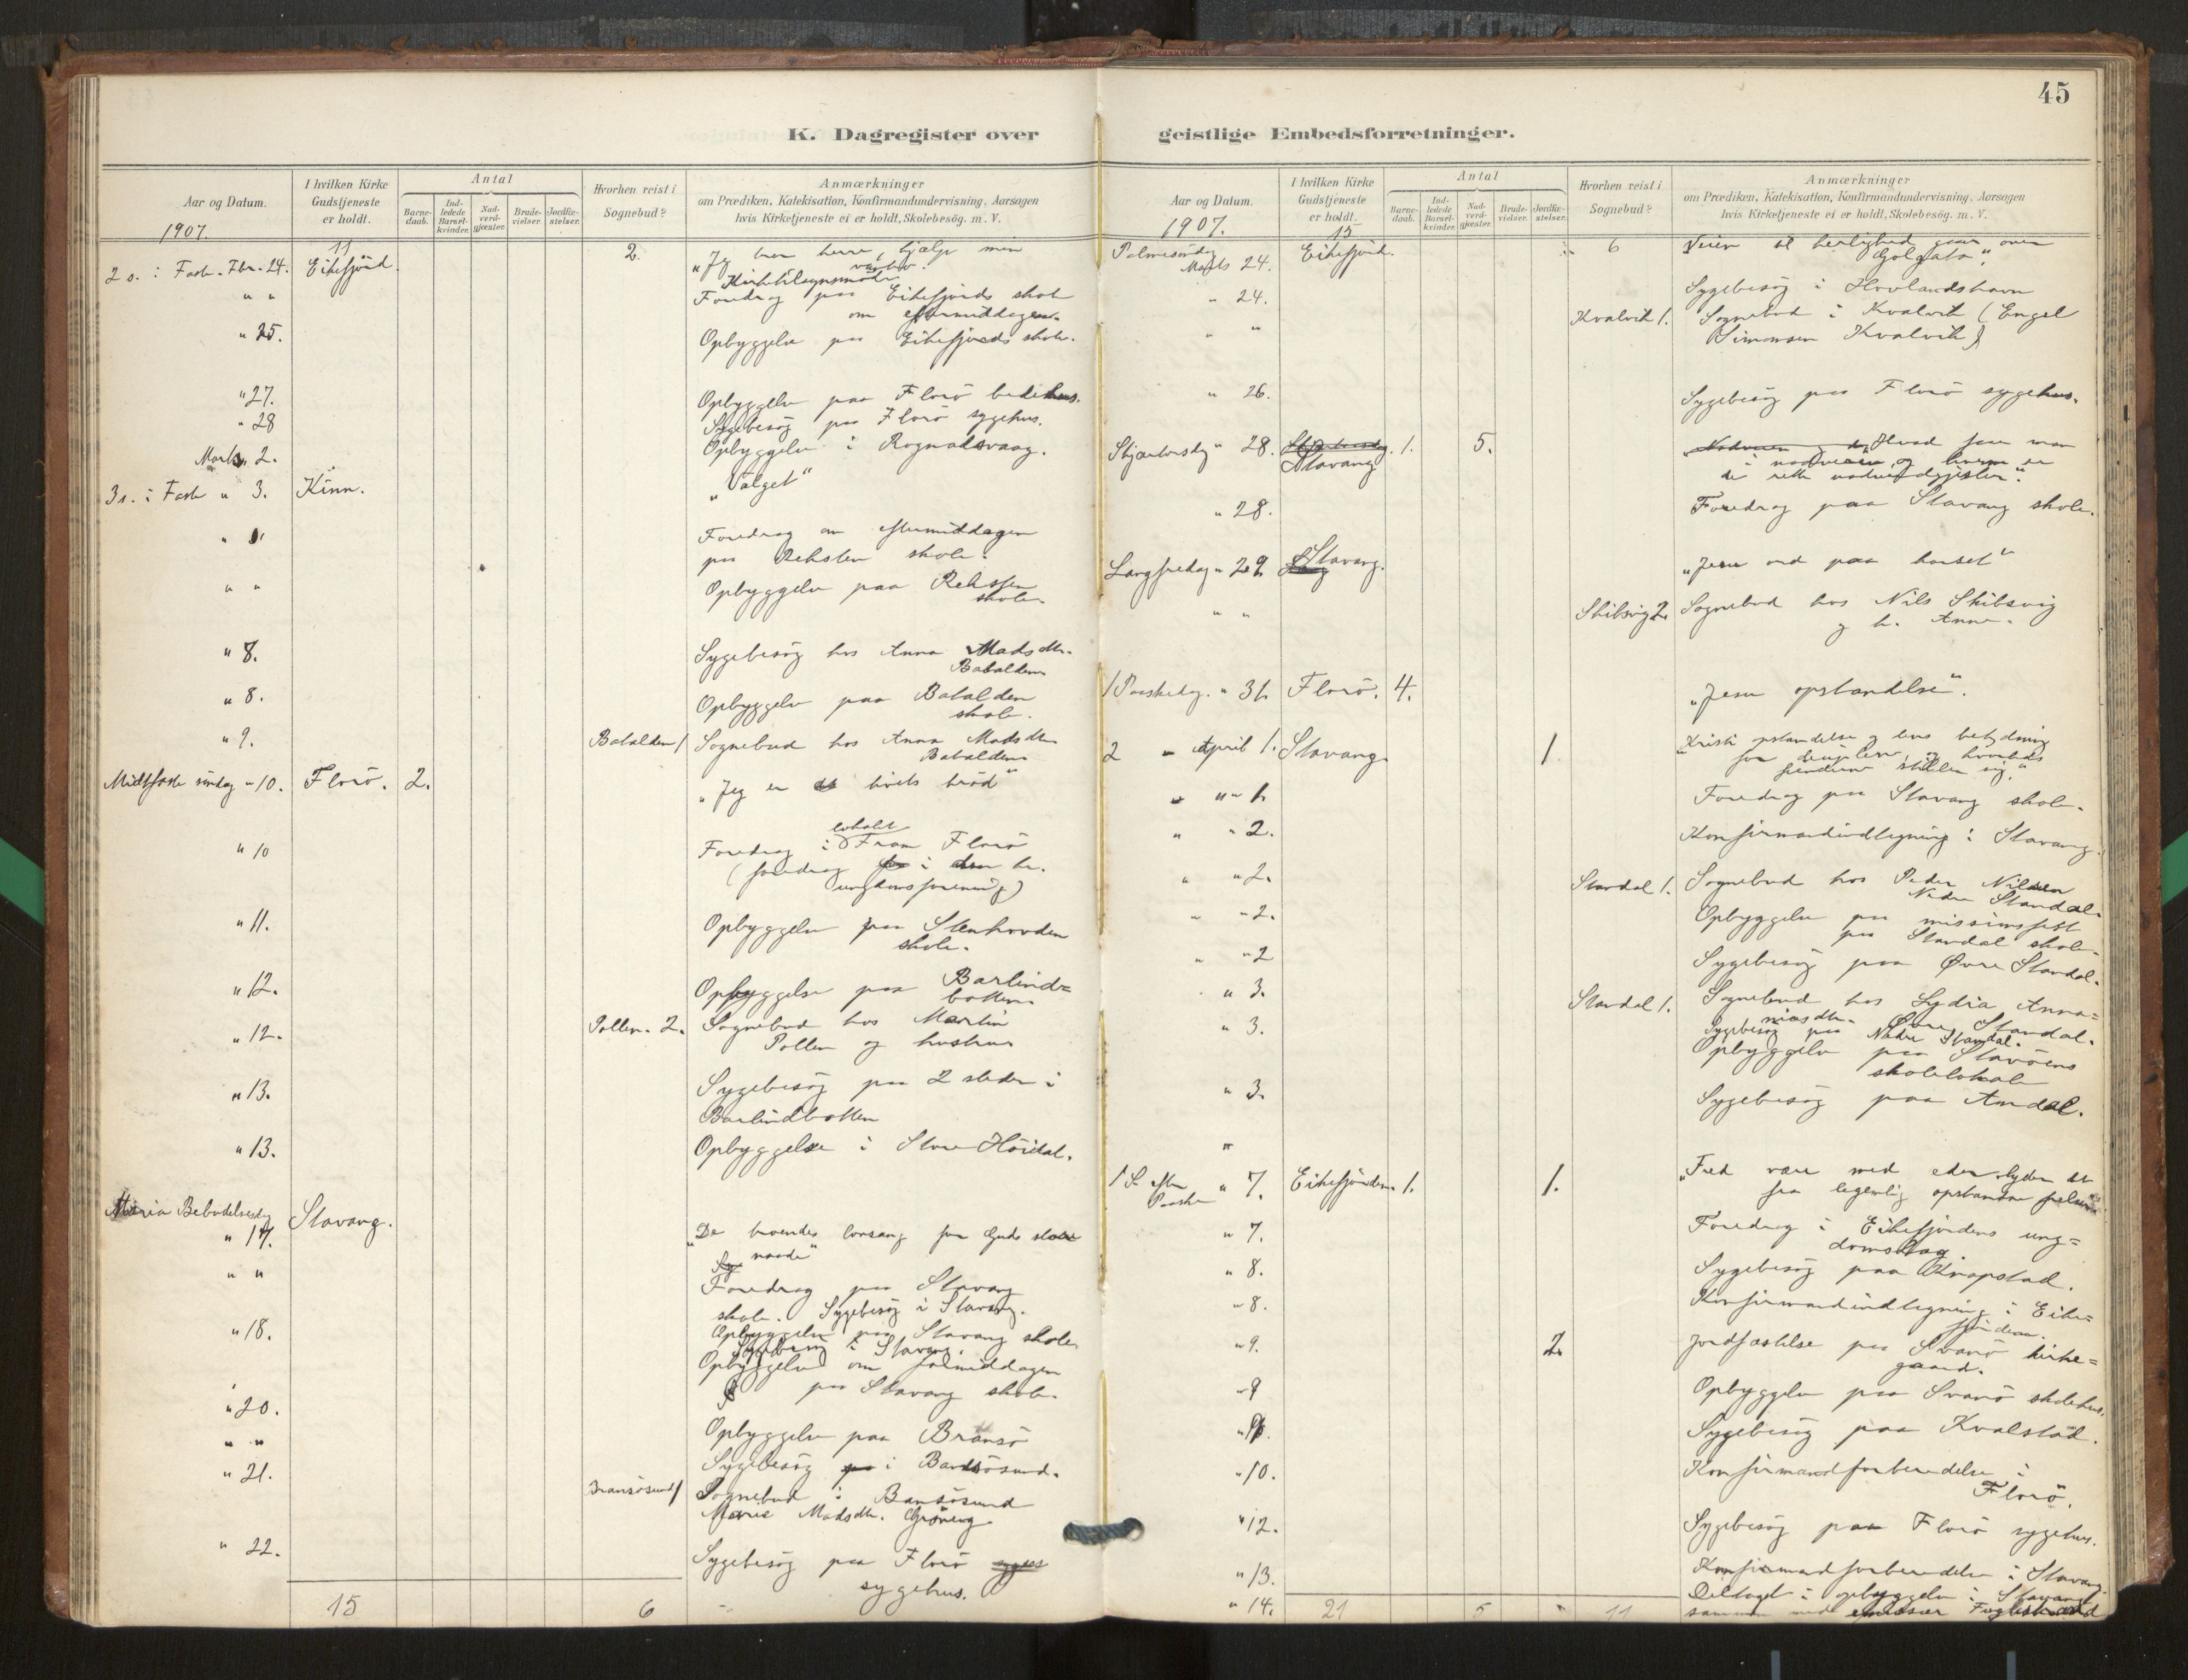 45
K. Dagregister over
geistlige Embedsforretninger.
Aar og Datum.
1907.
I hvilken Kirke
Gudstjeneste
er holdt.
Antal
Barne-
daab.
Ind-
ledede
Barsel-
kvinder.
Nad-
verd-
gjæster.
Brude-
vielser.
Jordfæ-
stelser.
Hvorhen reist i
Sognebud?
Anmærkninger
om Prædiken, Katekisation, Konfirmandundervisning, Aarsagen
hvis Kirketjeneste ei er holdt, Skolebesøg. m. V.
11 2.
2 s. i Faste. Fbr. 24. Eikefjord. "Jeg tror herre, hjælp min
vantro."
Kirketilsynsmöde
" " Foredrag paa Eikefjords skole
om eftermiddagen.
" 25. Opbyggelse paa Eikefjords skole.
" 27. Opbyggelse paa Florö bedehus.
" 28 Sygebesög paa Florö sygehus.
Marts 2. Opbyggelse i Rognaldsvaag.
3 s. i Faste " 3. Kinn. "Valget"
" Foredrag om eftermiddagen
paa Reksten skole.
" " Opbyggelse paa Reksten
skole.
" 8. Sygebesög hos Anna Madsdtr.
Batalden
" 8. Opbyggelse paa Batalden
skole.
" 9. Batalden 1 Sognebud hos Anna Madsdtr
Batalden
Midtfaste söndag " 10. Florö. 2. "Jeg er livets bröd"
" 10 Foredrag i Fram Florö
lokalet
(foredrag i den h.
ungdomsforening)
" 11. Opbyggelse paa Stenhovden
skole.
" 12. Opbyggelse paa Barlind=
botten.
" 12. Pollen. 2. Sognebud hos Martin
Pollen og hustru
" 13. Sygebesög paa 2 steder i
Barlindbotten
" 13. Opbyggelse i Store Höidal.
Maria Bebudelsesdag
" 17. Stavang. "De troendes lovsang for Guds store
naade"
" " Foredrag paa Stavang
skole. Sygebesög i Stavang.
" 18. Opbyggelse paa Stavang skole
Sygebesög i Stavang.
Opbyggelse om formiddagen
paa Stavang skole.
" 20. Opbyggelse paa Bransö
" " Sygebesög i Bansösund.
" 21. Bransösund 1 Sognebud i Bansösund
Marie Madsdtr. Gröneng.
" 22. Sygebesög paa Florö
sygehus.
15 6
Aar og Datum.
1907.
I hvilken Kirke
Gudstjeneste
er holdt.
Antal
Barne-
daab.
Ind-
ledede
Barsel-
kvinder.
Nad-
verd-
gjæster.
Brude-
vielser.
Jordfæ-
stelser.
Hvorhen reist i
Sognebud?
Anmærkninger
om Prædiken, Katekisation, Konfirmandundervisning. Aarsagen
hvis Kirketjeneste ei er holdt, Skolebesøg. m. V.
15 6
Palmesöndag
Marts 24. Eikefjord. Veien til herlighed gaar over
Golgata".
" 24. Sygebesög i Hovlandshavn
" " Kvalvik 1. Sognebud i Kvalvik (Engel
Simonsen Kvalvik)
" 26. Sygebesög paa Florö sygehus.
Skjærtorsdag " 28. Stavang 1. 5. Hvad faar man
i nadveren og hvem er
de rette nadverdgjester."
" 28. Foredrag paa Stavang skole.
Langfredag " 29. Stavang. "Jesu ord paa korset"
" " Skibsvig 2. Sognebud hos Nils Skibsvig
og h. Anne.
1 Paaskedag. " 31. Florö. 4. "Jesu opstandelse".
2 " April 1. Stavang. 1 "Kristi opstandelse og dens betydning
for disiplene, og hvorledes
fienderne stiller sig."
" " 1. Foredrag paa Stavang skole.
" " 2. Konfirmandindtegning i Stavang.
" " 2. Standal 1. Sognebud hos Peder Nilsen
Nedre Standal.
" " 2. Opbyggelse paa missionsfest
paa Standal skole.
" " 2 Sygebesög paa Øvre Standal.
" 3. Standal 1. Sognebud hos Lydia Anna=
niasdtr. Øvre Standal.
" 3. Sygebesög paa Nedre Standal.
Opbyggelse paa Stavöens
skolelokale
" 3. Sygebesög paa Amdal.
"
1 S. efter
Paaske " 7. Eikefjorden. 1. 1. "Fred være med eder lyder det
fra legemlig opstandne frelser"
" 7. Foredrag i Eikefjordens ung=
domslag.
" 8. Sygebesög paa Knapstad.
" 8. Konfirmandindtegning i Eike=
fjorden.
" 9. 2. Jordfæstelse paa Svanö kirke=
gaard.
" 9 Opbyggelse paa Svanö skolehus.
Sygebesög paa Kvalstad.
" 10. Konfirmandforberedelse i
Florö.
" 12. Sygebesög paa Florö sygehus.
" 13. Konfirmandforberedelse i Stavang.
" 14. Deltaget i opbyggelse i Stavang
sammen med emissær
21 5 11